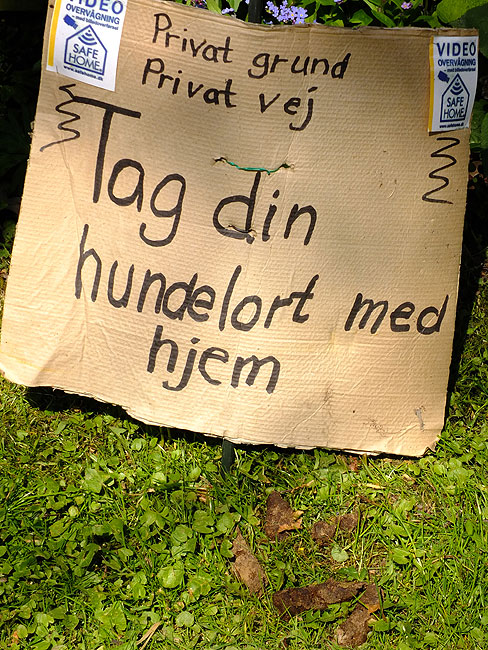 Privat grund
Privat vej
Tag din
hundelort med
hjem
VIDEO
OVERVÅGNING
SAFE
HOME
www.safehome.dk
VIDEO
OVERVÅGNING
SAFE
HOME